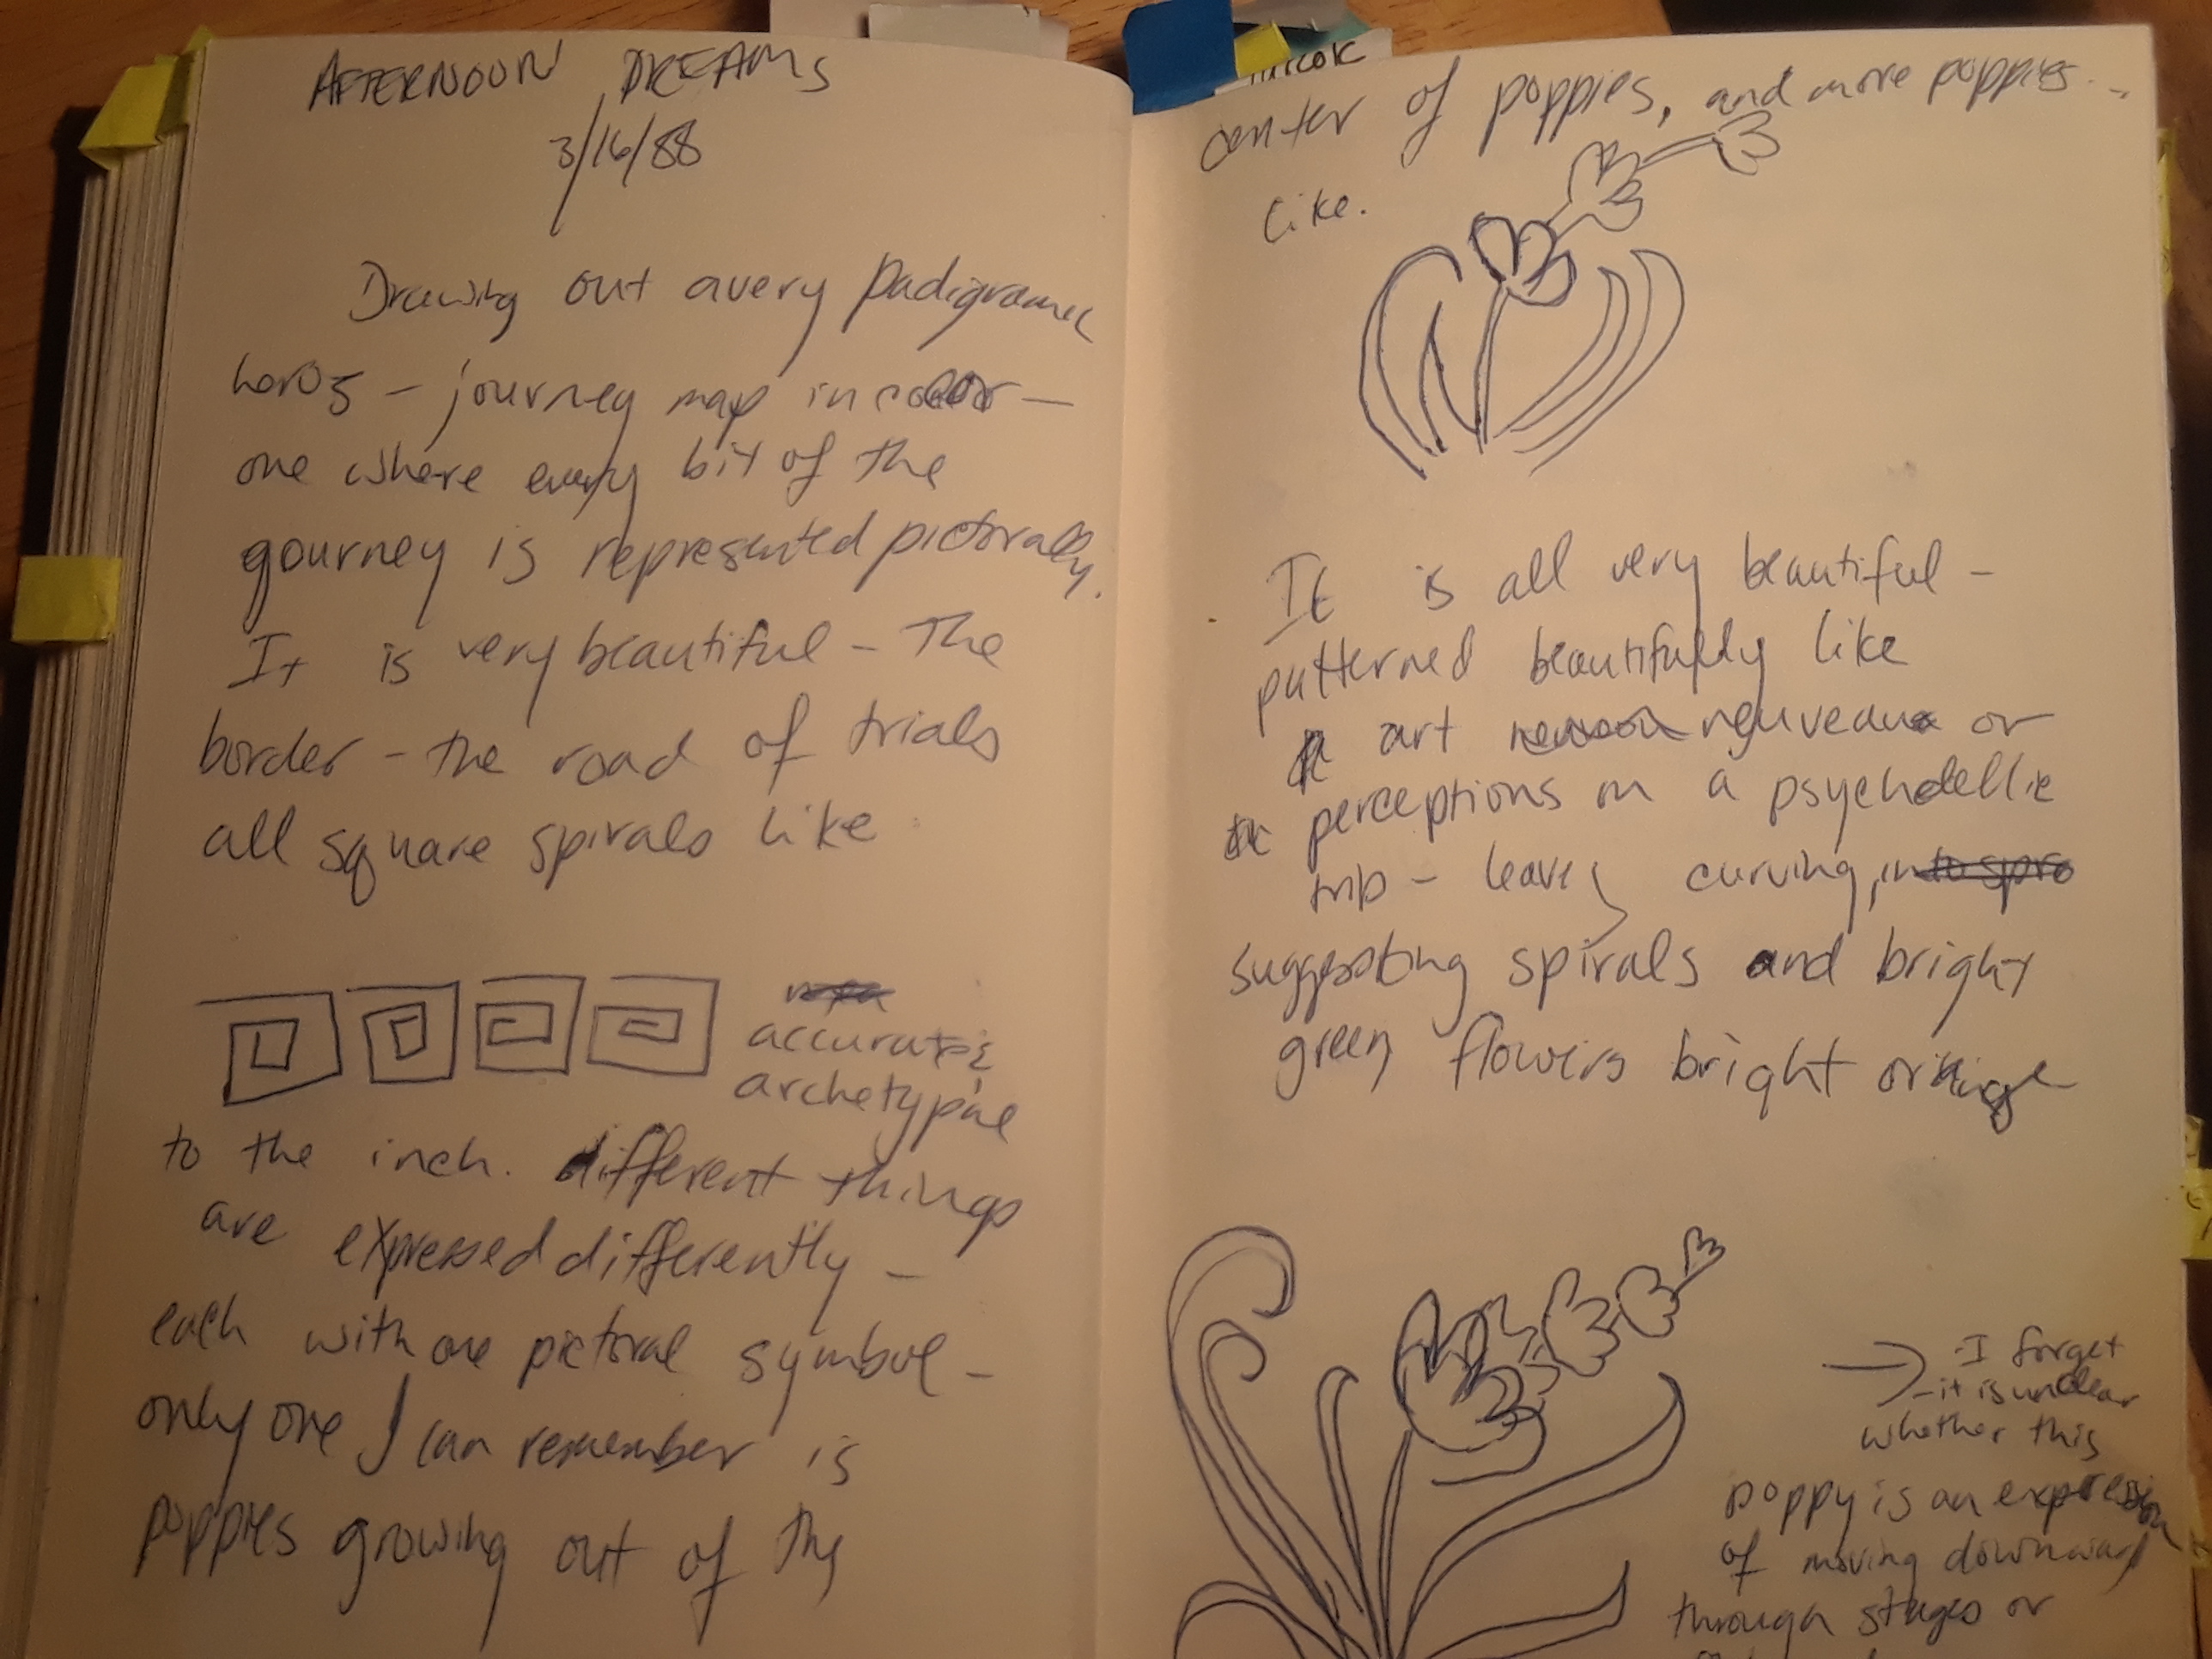 AFTERNOON DREAMS
3/16/88
Drawing out a very
heros - journey map in color -
one where every bit of the
gourney is represented pictorally.
It is very beautiful - The
border - the road of trials
all square spirals like
accurate
archetypal
to the inch. different things
are expressed differently -
each with one pictoral symbol -
only one I can remember is
poppies growing out of the
center of poppies, and more poppies...
like.
It is all very beautiful -
patterned beautifully like
art neuveau or
perceptions on a psychedellic
trip - leaves curving, into spira
suggesting spirals and bright
green flowers bright orange
I forget
- it is unclear
whether this
poppy is an expression
of moving downward
through stages or